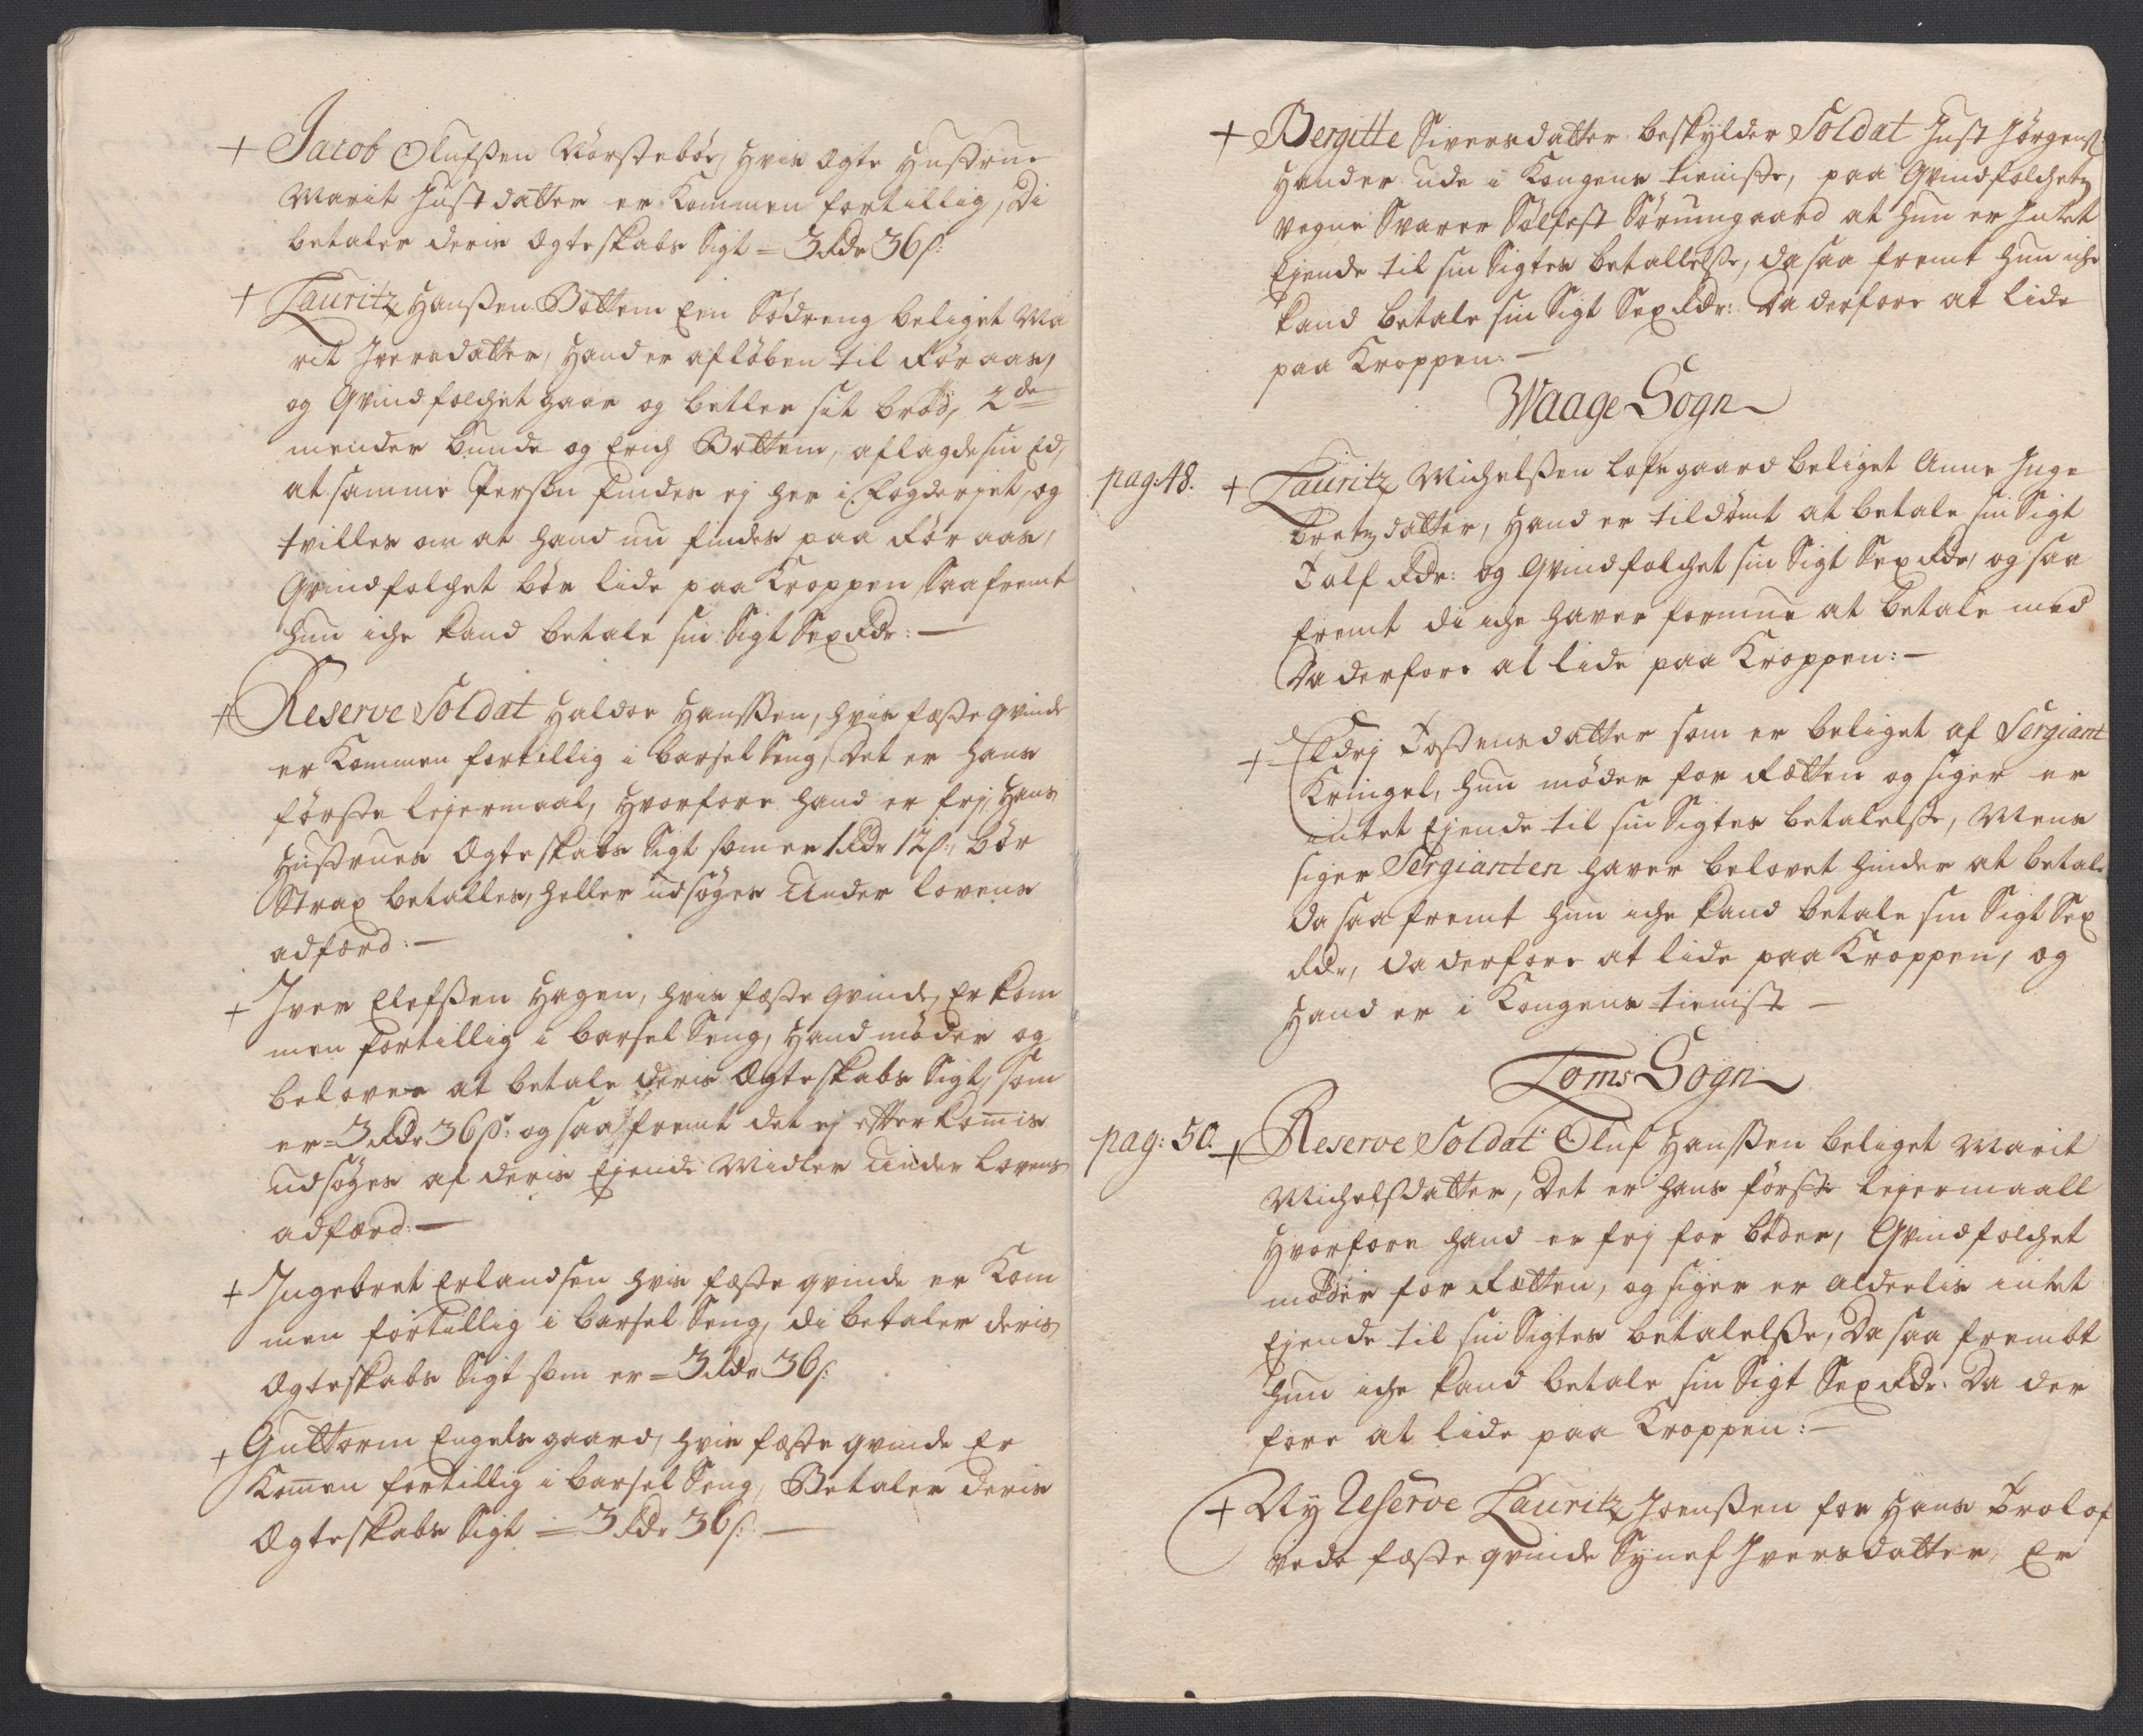 + Jacob Olufßen Nörsteböe, hvis Ægte Hustrue
Marit Justdatter er kommen fortillig, di
betaler deris Ægteskabs Sigt = 3 Rdr 36 s:
+ Lauritz Hanßen Bottem Een Södreng beliget Ma
rit Iversdatter, hand er aflöben til Röraas,
og Qvindfolchet gaar og betler sit bröd, 2de
mender Bunde og Erich Bottem, aflagde sin Eed,
at samme Persön findes ej her i Fogderjet, og
tvilles om at hand nu findes paa Röraas,
Qvindfolchet bör lide paa Kroppen, saafremt
hun iche kand betale sin Sigt Sex Rdr: —
+ Reserve Soldat Haldor Hanßen, hvis fæste qvinde
er kommen fortillig i barsel Seng, Det er hans
förste lejermaal, hvorfore hand er frj, hans
Hustrues Ægteskabs Sigt som er 1 Rdr 12 s:, bör
Strax betalles, heller udsöges under lovens
adfærd: —
+ Iver Elefßen Hagen, hvis fæste qvinde, Er kom
men fortillig i barsel Seng, hand möder og
belover at betale deris Ægteskabs Sigt, som
er = 3 Rdr 36 s: og saa fremt det ej efterkomis
udsöges af deris Ejende Midler under lovens
adfærd: —
+ Ingebret Erlandsen hvis fæste qvinde er kom
men fortillig i barsel Seng, di betaler deris
Ægteskabs Sigt som er = 3 Rdr 36 s:
+ Guttorm Engelsgaard, hvis fæste qvinde Er
kommen fortillig i barsel Seng, Betaler deris
Ægteskabs Sigt = 3 Rdr 36 s: —
+ Bergitte Siversdatter beskylder Soldat Just Jörgens:
hand er ude i Kongens tieniste, paa Qvindfolchetz
vegne Svarer Sölfest Sörumgaard at hun er Intet
Ejende til sin Sigtes betallelße, da saa fremt hun iche
kand betale sin Sigt Sex Rdr: Da derfore at lide
paa Kroppen: —
Waage Sogn
pag: 48. + Lauritz Michelßen Lofsgaard beliget Anne Inge
bretzdatter, hand er tildömt at betale sin Sigt
Tolf Rdr: og Qvindfolchet sin Sigt Sex Rdr, og saa
fremt di iche haver formue at betale med
Da derfore at lide paa Kroppen: —
+ Eldrj Tostensdatter som er beliget af Sergiant
Kringel, hun möder for Rætten og siger er
intet Ejende til sin Sigtes betalelße, Mens
siger Sergianten haver belovet hinder at betale
da saa fremt hun iche kand betale sin Sigt Sex
Rdr, da derfore at lide paa Kroppen, og
hand er i Kongens tieniste —
Loms Sogn
pag: 50. + Reserve Soldat Oluf Hanßen beliget Marit
Michelsdatter, Det er hans förste lejermaall
hvorfore hand er frj for böder, Qvindfolchet
möder for Rætten, og siger er alderlis intet
Ejende til sin Sigtes betalelße, Da saa frembt
hun iche kand betale sin Sigt Sex Rdr. Da der
fore at lide paa Kroppen: —
+ Ny Reserve Lauritz Joenßen for hans Trolof
vede fæste qvinde Synef Iversdatter, Er